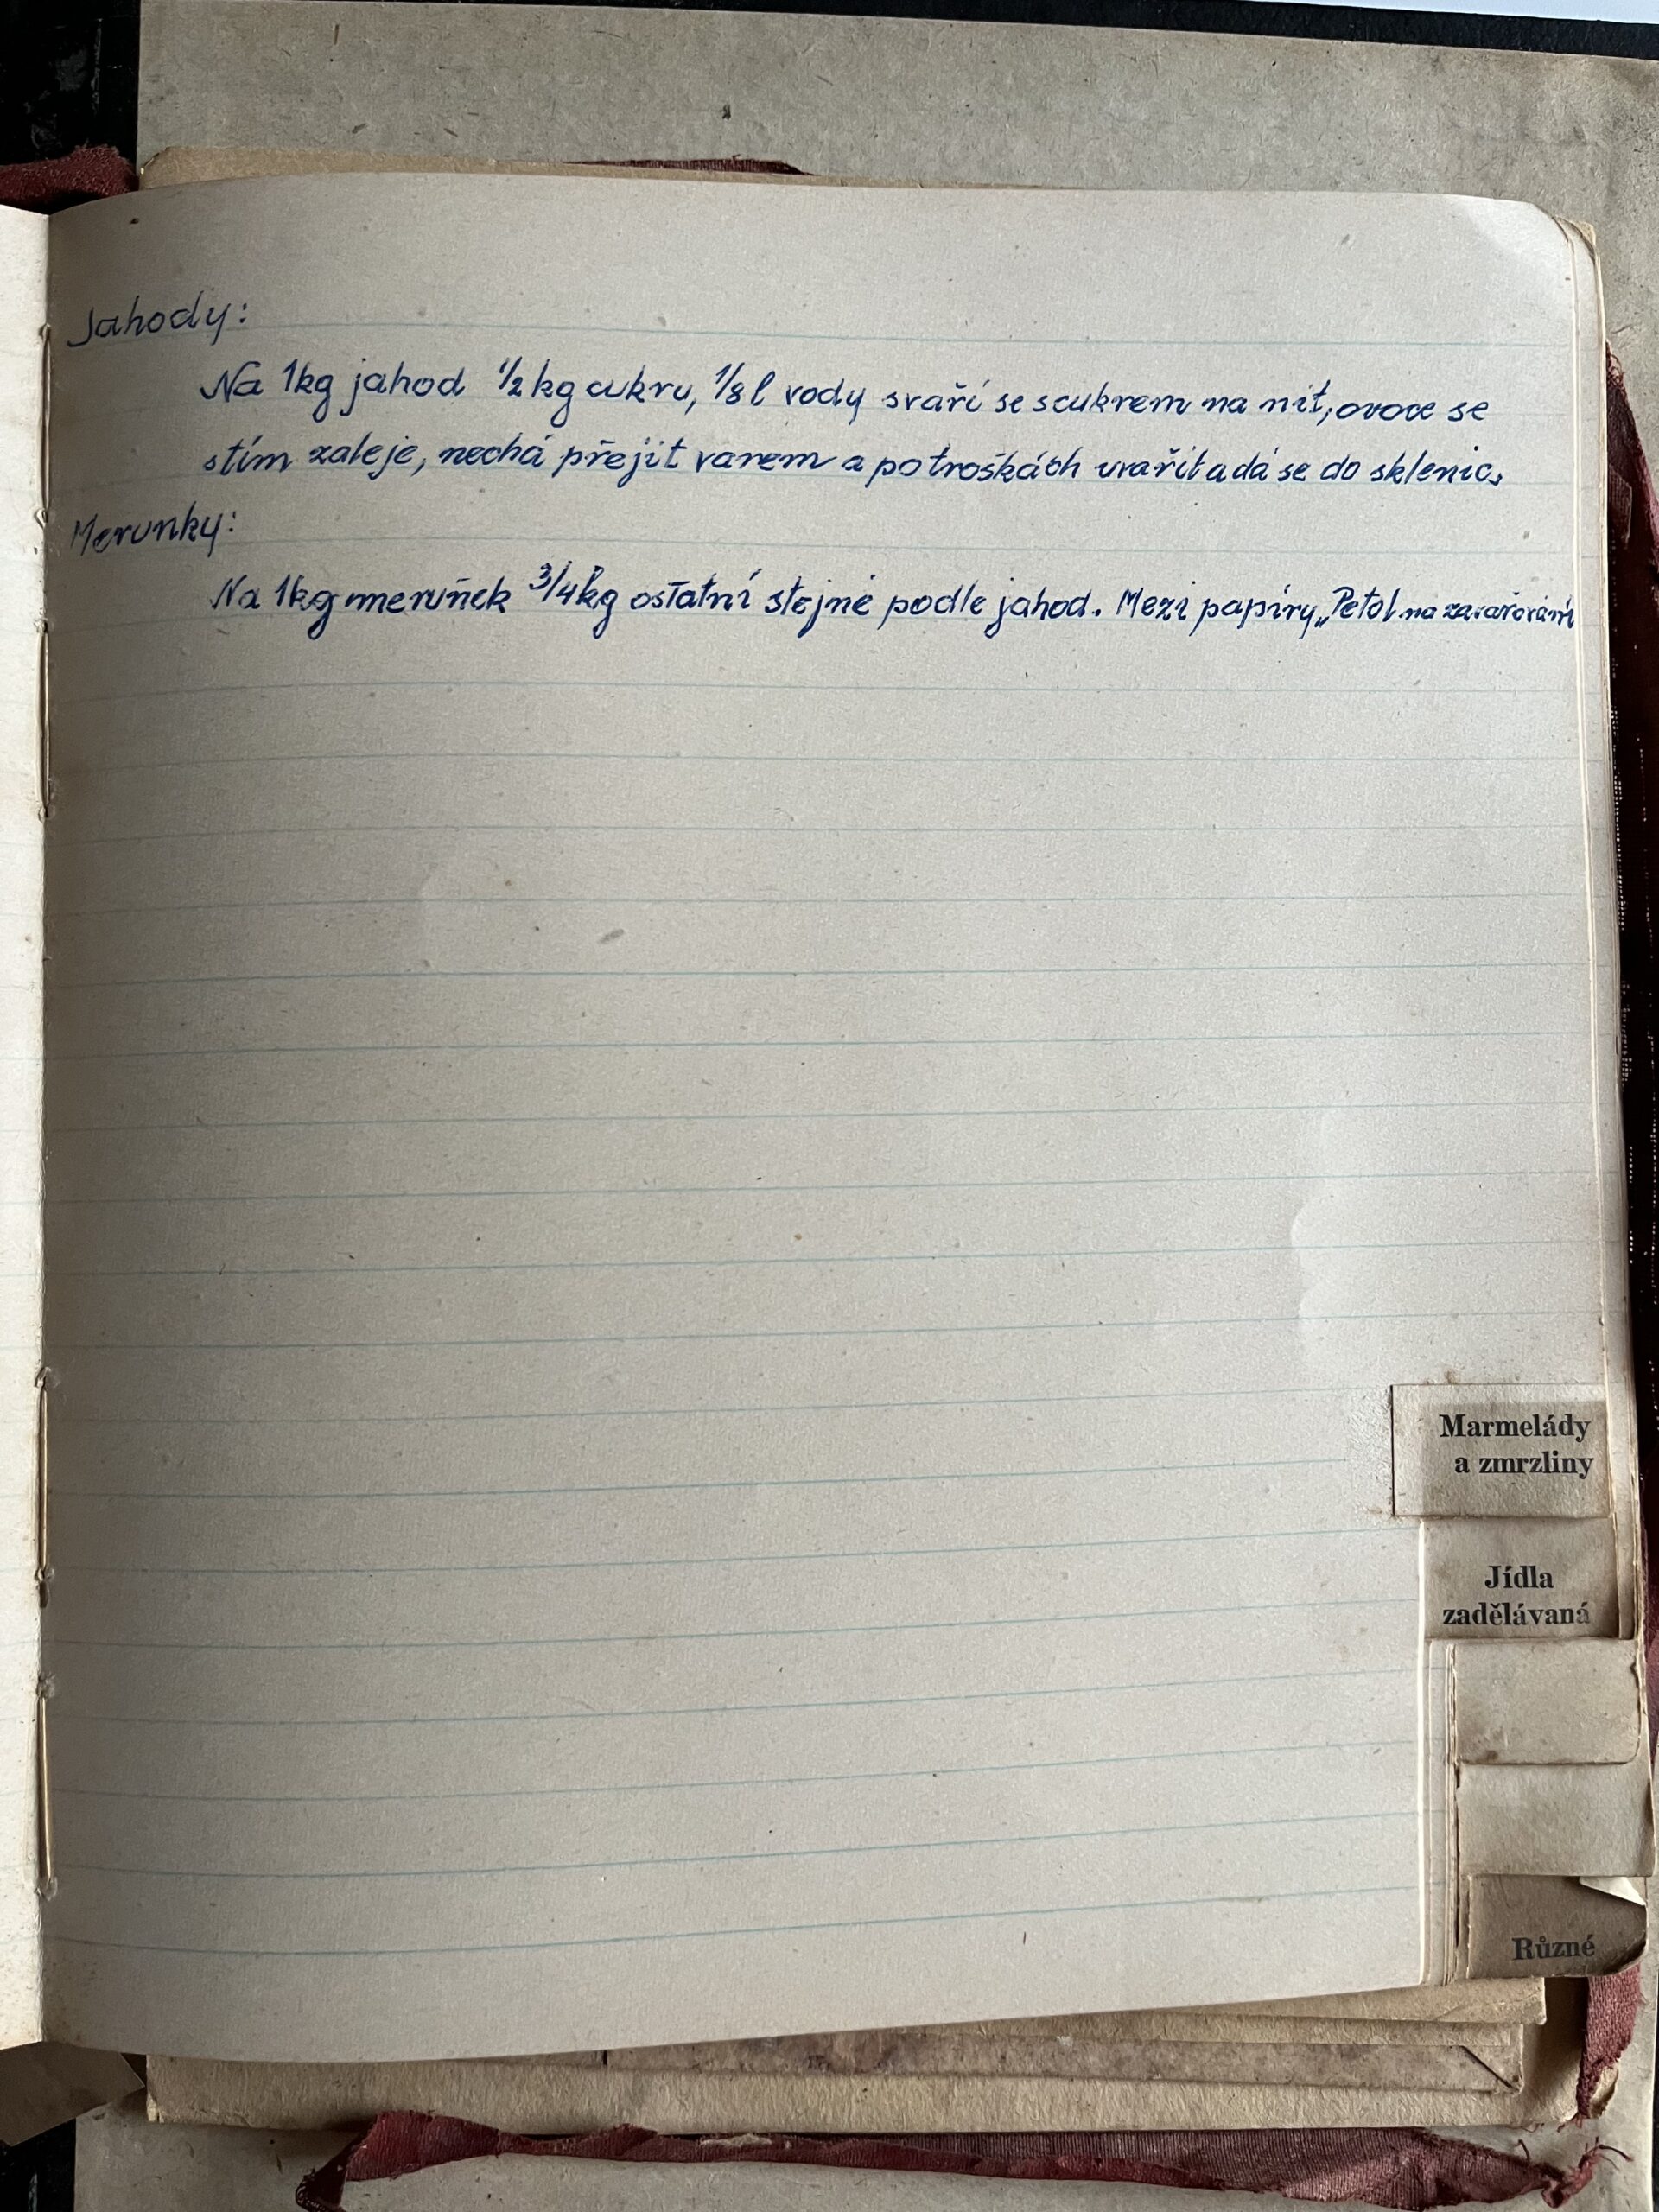 Jahody:
Na 1kg jahod 1/2 kg cukru, 1/8 l vody svaří se scukrem na nit, ovoce se
stím zaleje, nechá přejít varem a potroškách uvařit a dá se do sklenic.
Merunky:
Na 1kg meruněk 3/4 kg ostatní stejné podle jahod. Mezi papíry „Petol na zavařování
Marmelády
a zmrzliny
Jídla
zadělávaná
Různé